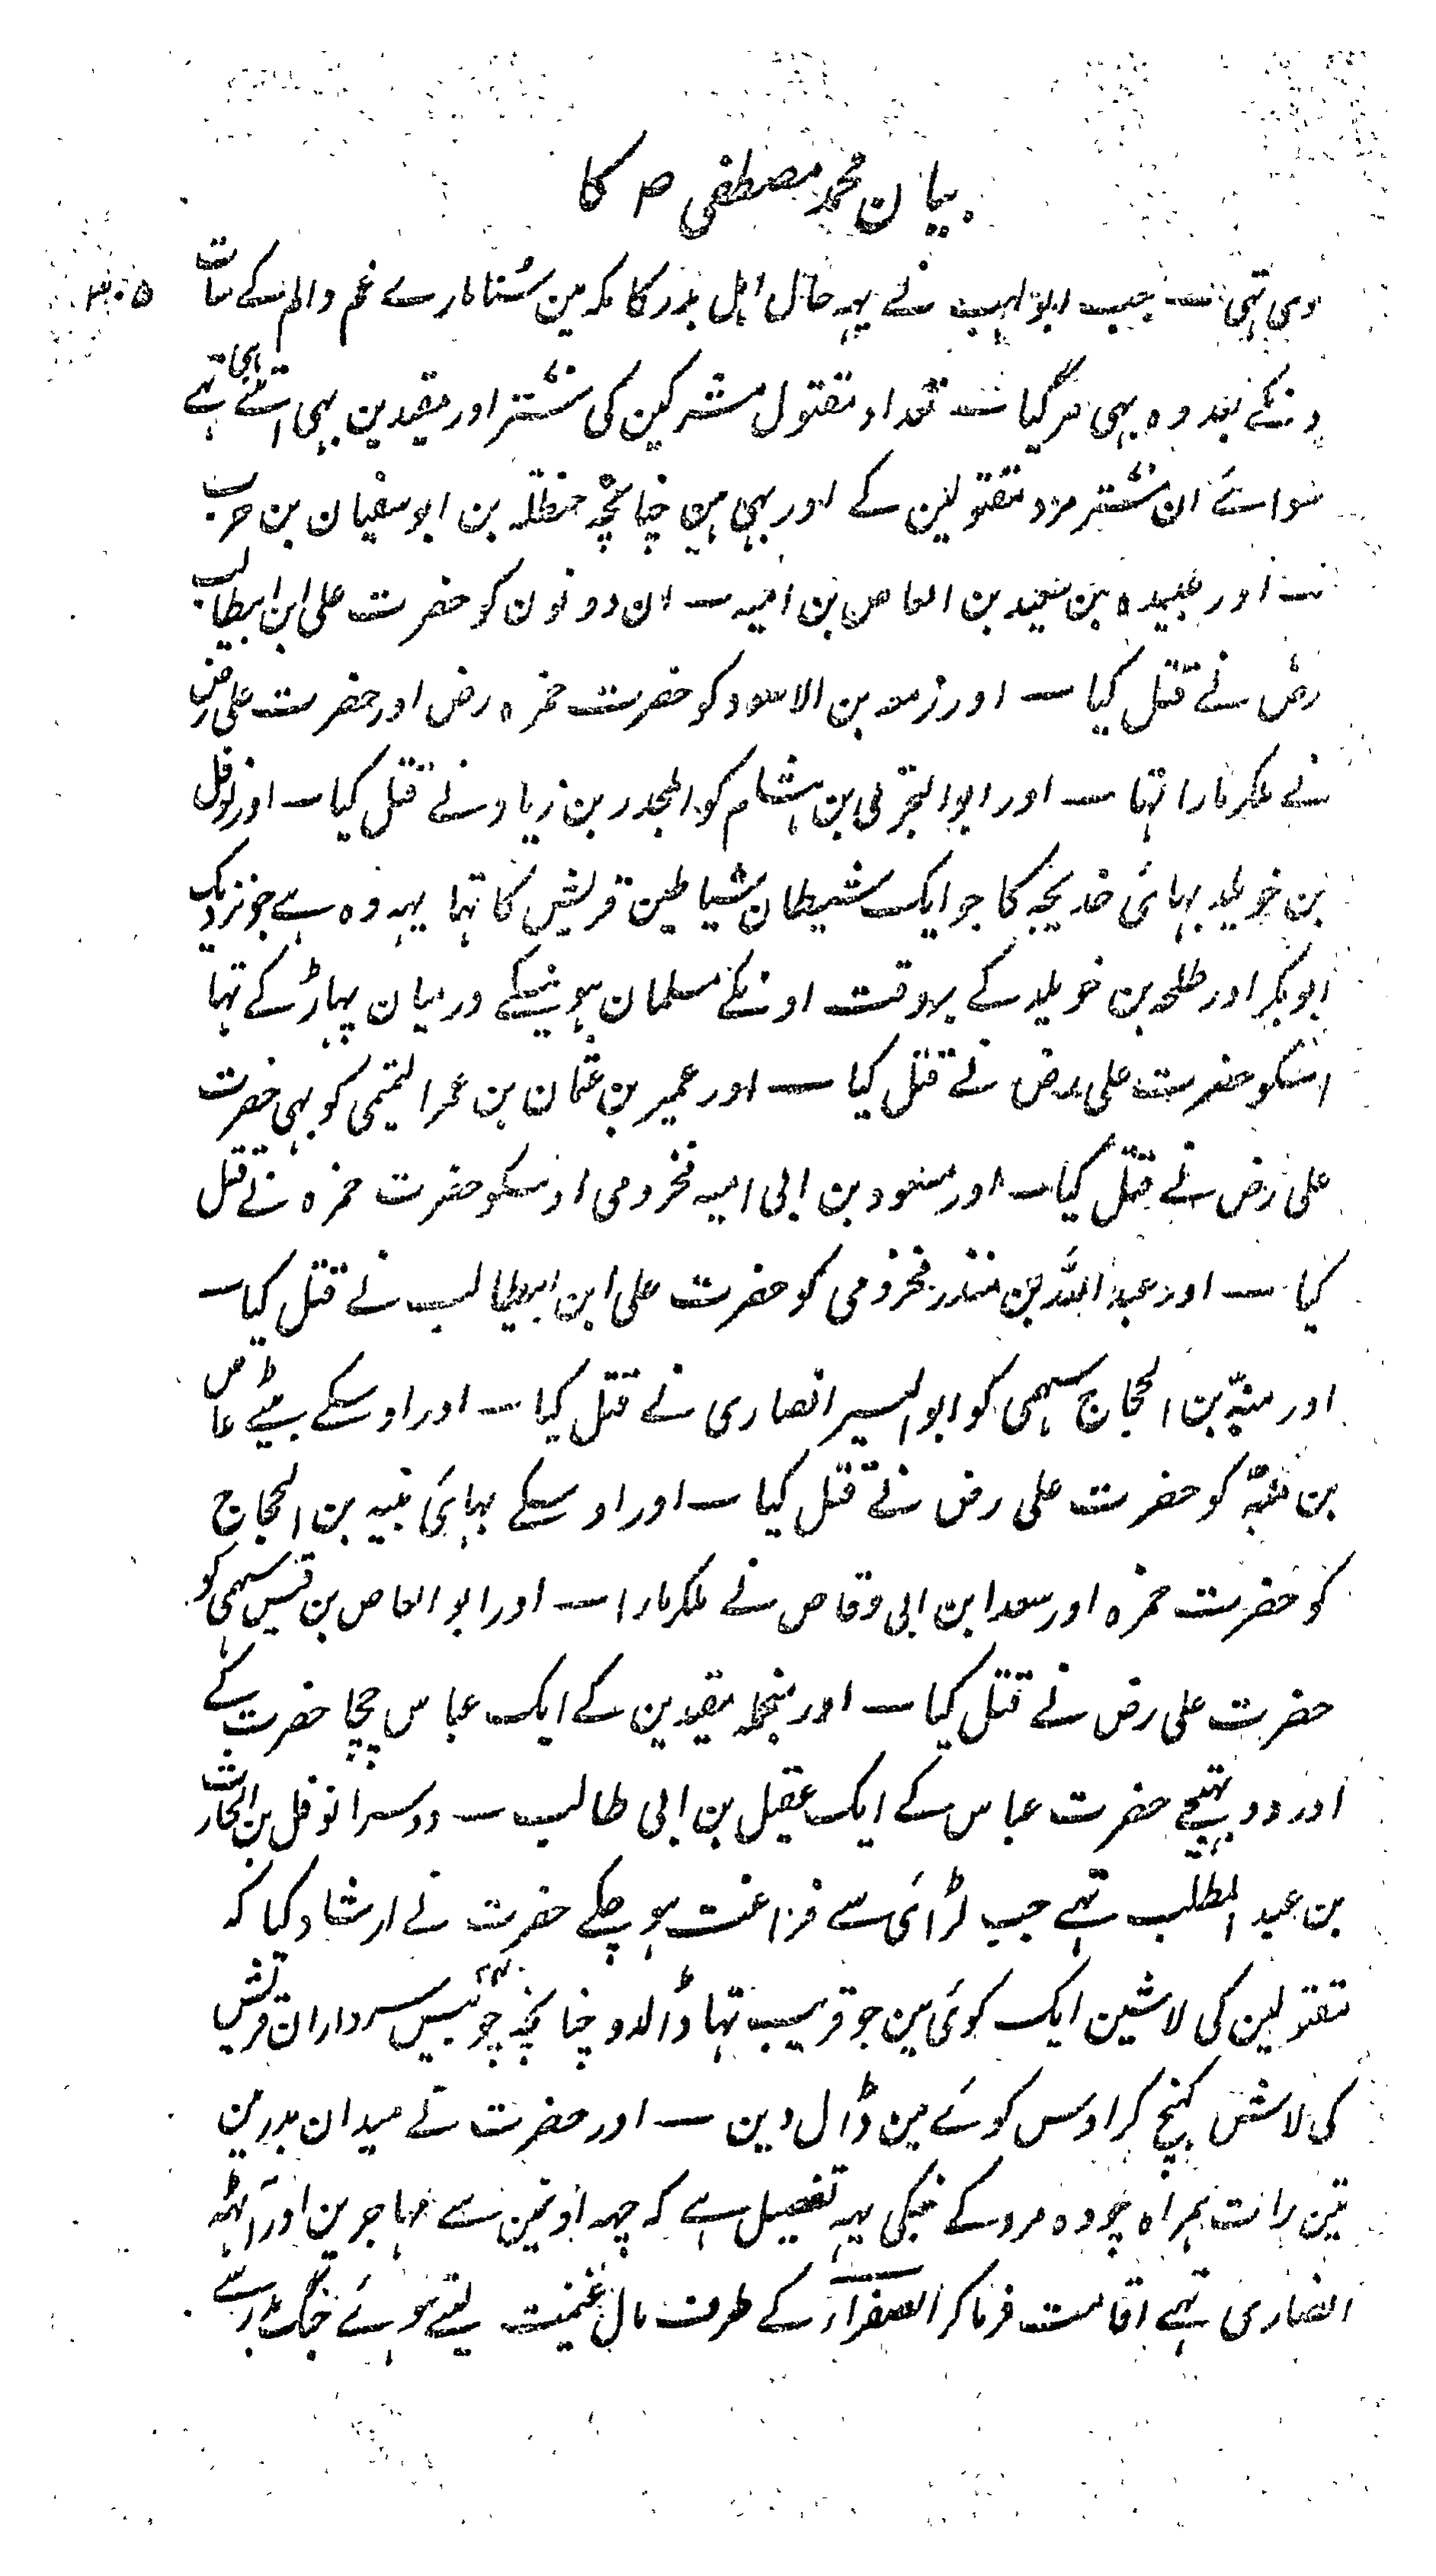 بیان محمد مصطفی ص کا
۳۰۵
دی تہی ۔ جب ابولہب نے یہہ حال اہل بدر کا مکہ مین سُنا مارے غم والم کے سات
دنکے بعد وہ بہی مرگیا ۔ تعداد مقتول مشرکین کی ستر اور مقیدین بہی اتنے ہی تہے
سوائے ان ستر مرد مقتولین کے اور بہی ہین چنانچہ حنظلہ بن ابوسفیان بن حرب
۔ اور عبیدہ بن سعید بن العاص بن امیہ ۔ ان دونون کو حضرت علی ابن ابیطالب
رض نے قتل کیا ۔ اور زمعہ بن الاسود کو حضرت حمزہ رض اور حضرت علی رض
نے ملکر مارا تہا ۔ اور ابو البختری بن ہشام کو المجدر بن زیاد نے قتل کیا ۔ اور نوفل
بن خویلد بہائی خدیجہ کا جو ایک شیطان شیاطین قریش کا تہا یہہ وہ ہے جو نزدیک
ابوبکر اور طلحہ بن خویلد کے بروقت اونکے مسلمان ہونیکے درمیان پہاڑ کے تہا
اسکو حضرت علی رض نے قتل کیا ۔ اور عمیر بن عثمان بن عمر التیمی کو بہی حضرت
علی رض نے قتل کیا ۔ اور مسعود بن ابی امیہ مخزومی اوسکو حضرت حمزہ نے قتل
کیا ۔ اور عبد اللہ بن منذر مخزومی کو حضرت علی ابن ابیطالب نے قتل کیا ۔
اور منبّہ بن الحجاج سہمی کو ابو الیسر انصاری نے قتل کیا ۔ اور اوسکے بیٹے عاص
بن منبّہ کو حضرت علی رض نے قتل کیا ۔ اور اوسکے بہائی نبیہ بن الحجاج
کو حضرت حمزہ اور سعد ابن ابی وقاص نے ملکر مارا ۔ اور ابو العاص بن قیس سہمی کو
حضرت علی رض نے قتل کیا ۔ اور منجملہ مقیدین کے ایک عباس چچا حضرت کے
اور دو بہتیجے حضرت عباس کے ایک عقیل بن ابی طالب ۔ دوسرا نوفل بن الحارث
بن عبد المطلب تہے جب لڑائی سے فراغت ہو چکے حضرت نے ارشاد کیا کہ
مقتولین کی لاشین ایک کوئی مین جو قریب تہا ڈالدو چنانچہ چوبیس سرداران قریش
کی لاشین کہنچ کر اوس کوئے مین ڈال دین ۔ اور حضرت نے میدان بدر مین
تین رات ہمراہ چودہ مرد کے جنکی یہہ تفصیل ہے کہ چہہ اونمین سے مہاجرین اور آٹہہ
انصاری تہے اقامت فرماکر الصفراء کے طرف مال غنیمت لیتے ہوئے جنگ بدر سے